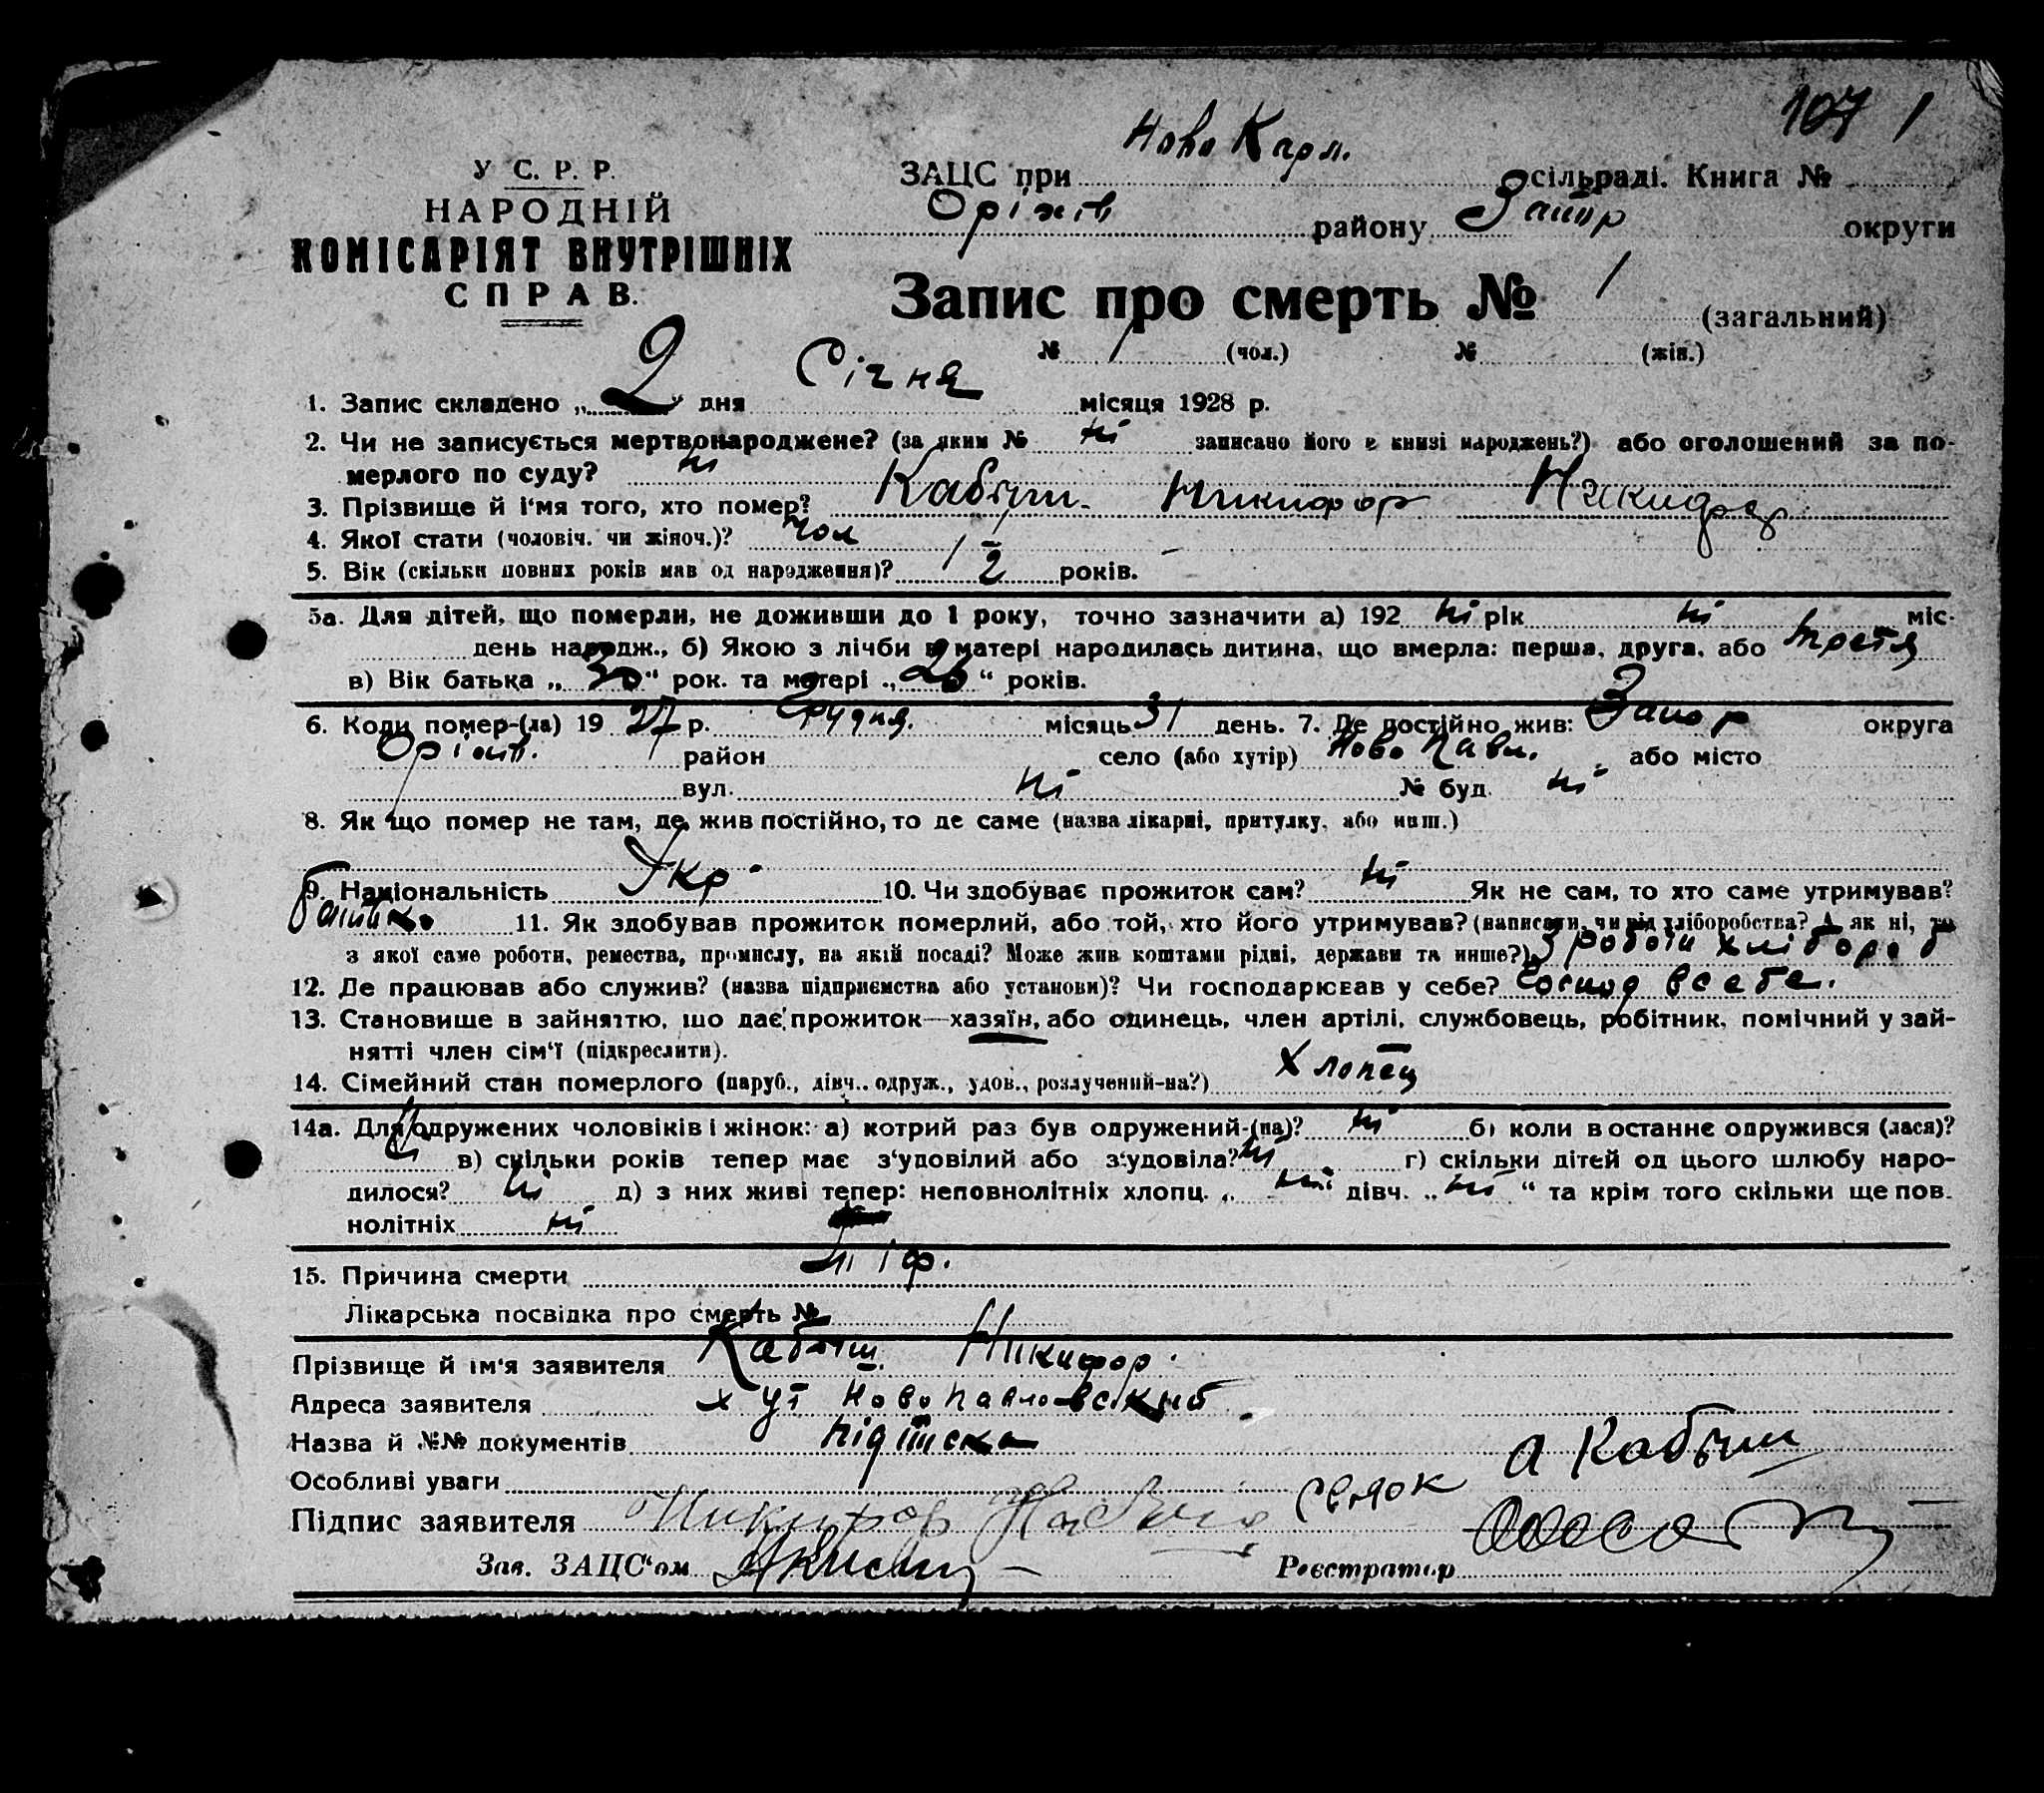 107 1
У С. Р. Р.
НАРОДНІЙ
КОМІСАРІЯТ ВНУТРІШНІХ
СПРАВ.
ЗАЦС при Ново Карл. сільраді. Книга №
Оріхів району Запор округи
Запис про смерть № 1 (загальний)
№ 1 (чол.) № (жін.)
1. Запис складено „2“ дня Січня місяця 1928 р.
2. Чи не записується мертвонароджене? (за яким № ні записано його в книзі народжень?) або оголошений за по-
мерлого по суду? ні
3. Прізвище й і'мя того, хто помер? Кабыш Никифор Никифор
4. Якої стати (чоловіч. чи жіноч.)? чол
5. Вік (скільки повних років мав од народження)? 1 2 років.
5а. Для дітей, що померли, не доживши до 1 року, точно зазначити а) 192 ні рік ні міс.
день народж., б) Якою з лічби в матері народилась дитина, що вмерла: перша, друга, або третя
в) Вік батька „30“ рок. та матері „26“ років.
6. Коли помер-(ла) 19 27 р. Грудня. місяць 31 день. 7. Де постійно жив: Запор округа
Оріхів. район село (або хутір) Ново Павл. або місто
вул. ні № буд. ні
8. Як що помер не там, де жив постійно, то де саме (назва лікарні, притулку, або инш.)
9. Національність Укр 10. Чи здобуває прожиток сам? ні Як не сам, то хто саме утримував?
батько 11. Як здобував прожиток померлий, або той, хто його утримував? (написати, чи від хліборобства? А як ні, то
з якої саме роботи, ремества, промислу, на якій посаді? Може жив коштами рідні, держави та инше?) З роботи хлібороб
12. Де працював або служив? (назва підприємства або установи)? Чи господарював у себе? Господ в себе.
13. Становище в зайняттю, що дає прожиток—хазяїн, або одинець, член артілі, службовець, робітник, помічний у зай-
нятті член сім'ї (підкреслити).
14. Сімейний стан померлого (паруб., дівч., одруж., удов., розлучений-на?) Хлопец
14а. Для одружених чоловіків і жінок: а) котрий раз був одружений-(на)? ні б) коли востаннє одружився (лася)?
ні в) скільки років тепер має з'удовілий або з'удовіла? ні г) скільки дітей од цього шлюбу наро-
дилося? ні д) з них живі тепер: неповнолітніх хлопц. „ні дівч. „ні“ та крім того скільки ще пов.
нолітніх ні
15. Причина смерти тіф.
Лікарська посвідка про смерть №
Прізвище й ім'я заявителя Кабыш Никифор.
Адреса заявителя хут Новопавловський
Назва й №№ документів підписка
Особливі уваги
Підпис заявителя Никифор Кабыш Свідок А Кабыш
Зав. ЗАЦС'ом Реєстратор